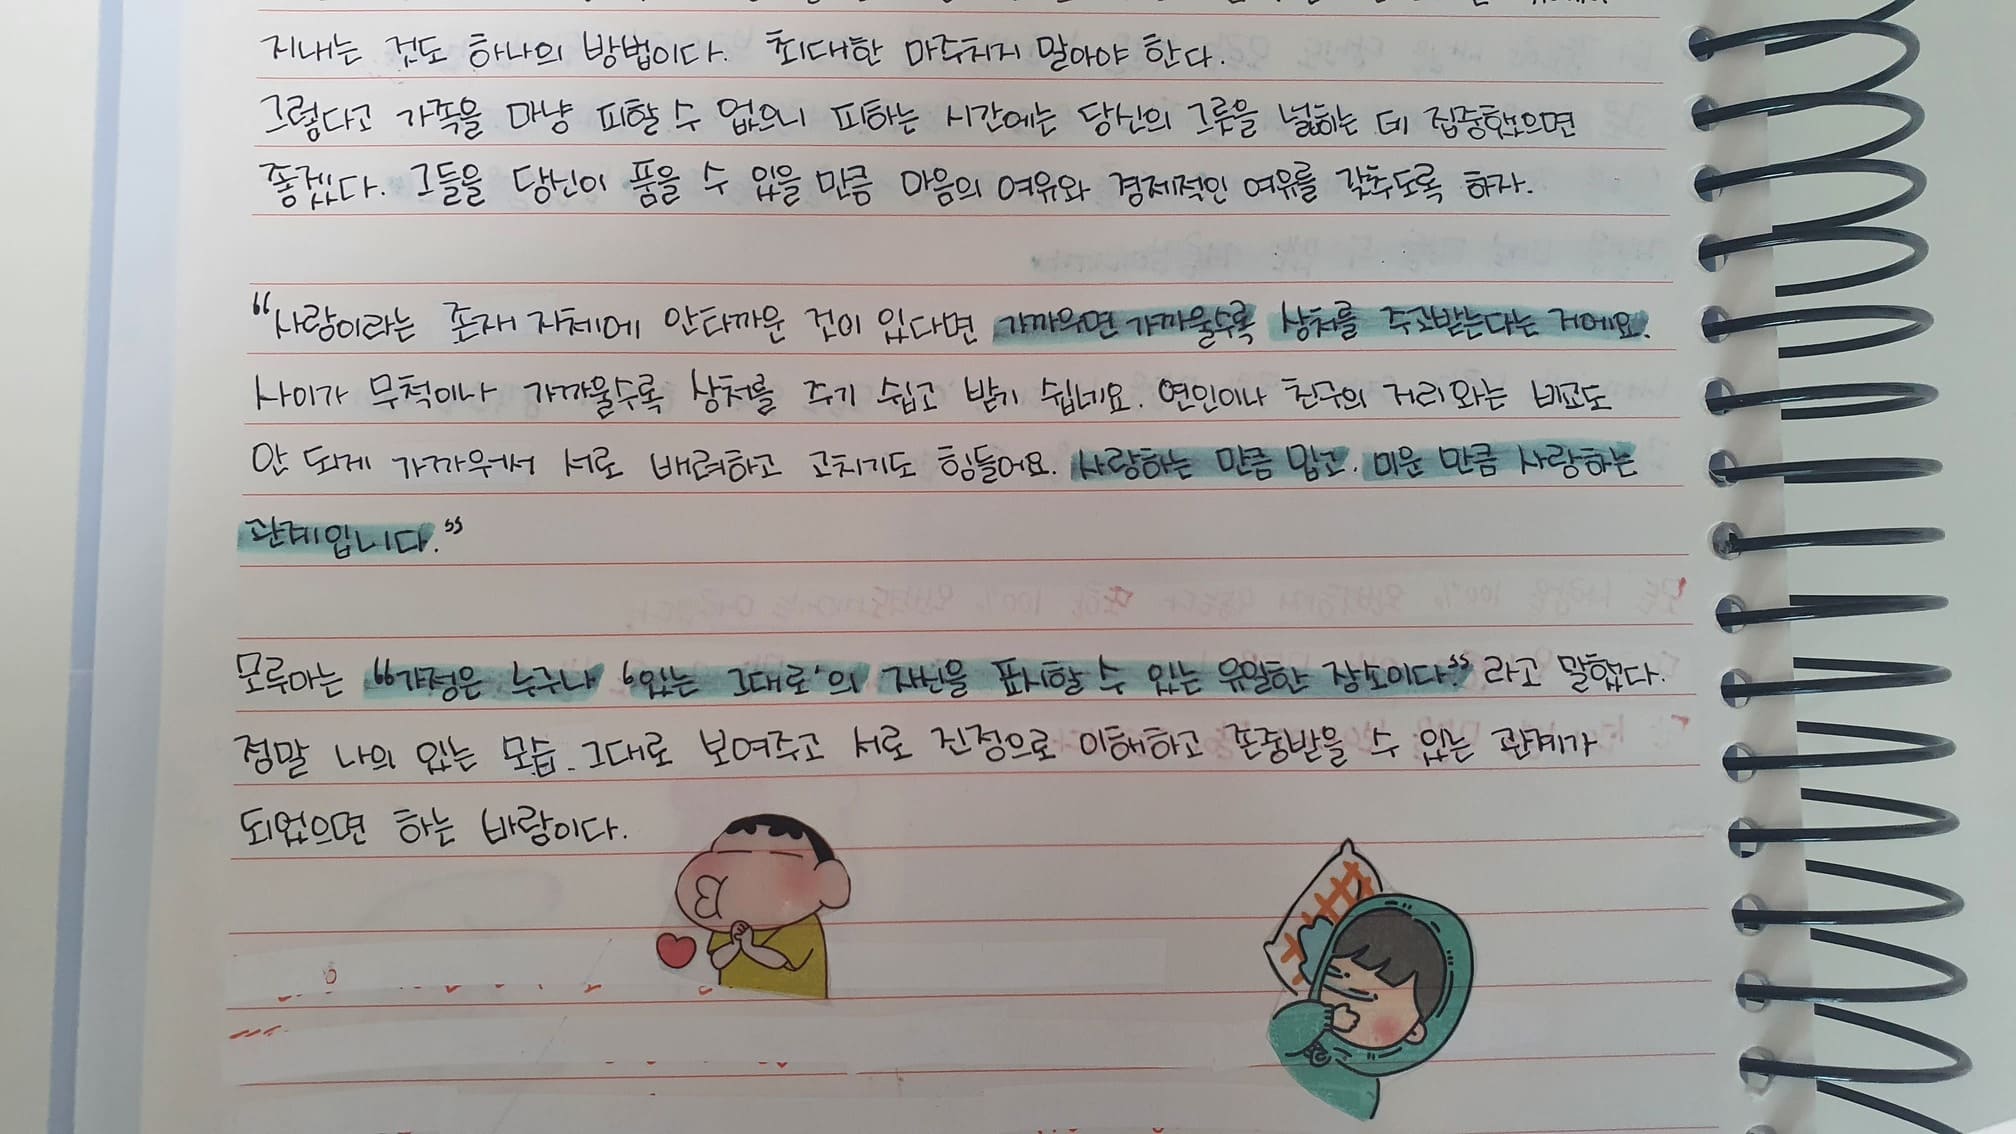 지내는 것도 하나의 방법이다. 최대한 마주치지 말아야 한다.
그렇다고 가족을 마냥 피할 수 없으니 피하는 시간에는 당신의 그릇을 넓히는 데 집중했으면
좋겠다. 그들을 당신이 품을 수 있을 만큼 마음의 여유와 경제적인 여유를 갖추도록 하자.
“사랑이라는 존재 자체에 안타까운 것이 있다면 가까우면 가까울수록 상처를 주고받는다는 거예요.
사이가 무척이나 가까울수록 상처를 주기 쉽고 받기 쉽네요. 연인이나 친구의 거리와는 비교도
안 되게 가까워서 서로 배려하고 고치기도 힘들어요. 사랑하는 만큼 밉고, 미운 만큼 사랑하는
관계입니다.”
모루아는 “가정은 누구나 ‘있는 그대로’의 자신을 표시할 수 있는 유일한 장소이다.” 라고 말했다.
정말 나의 있는 모습 그대로 보여주고 서로 진정으로 이해하고 존중받을 수 있는 관계가
되었으면 하는 바람이다.